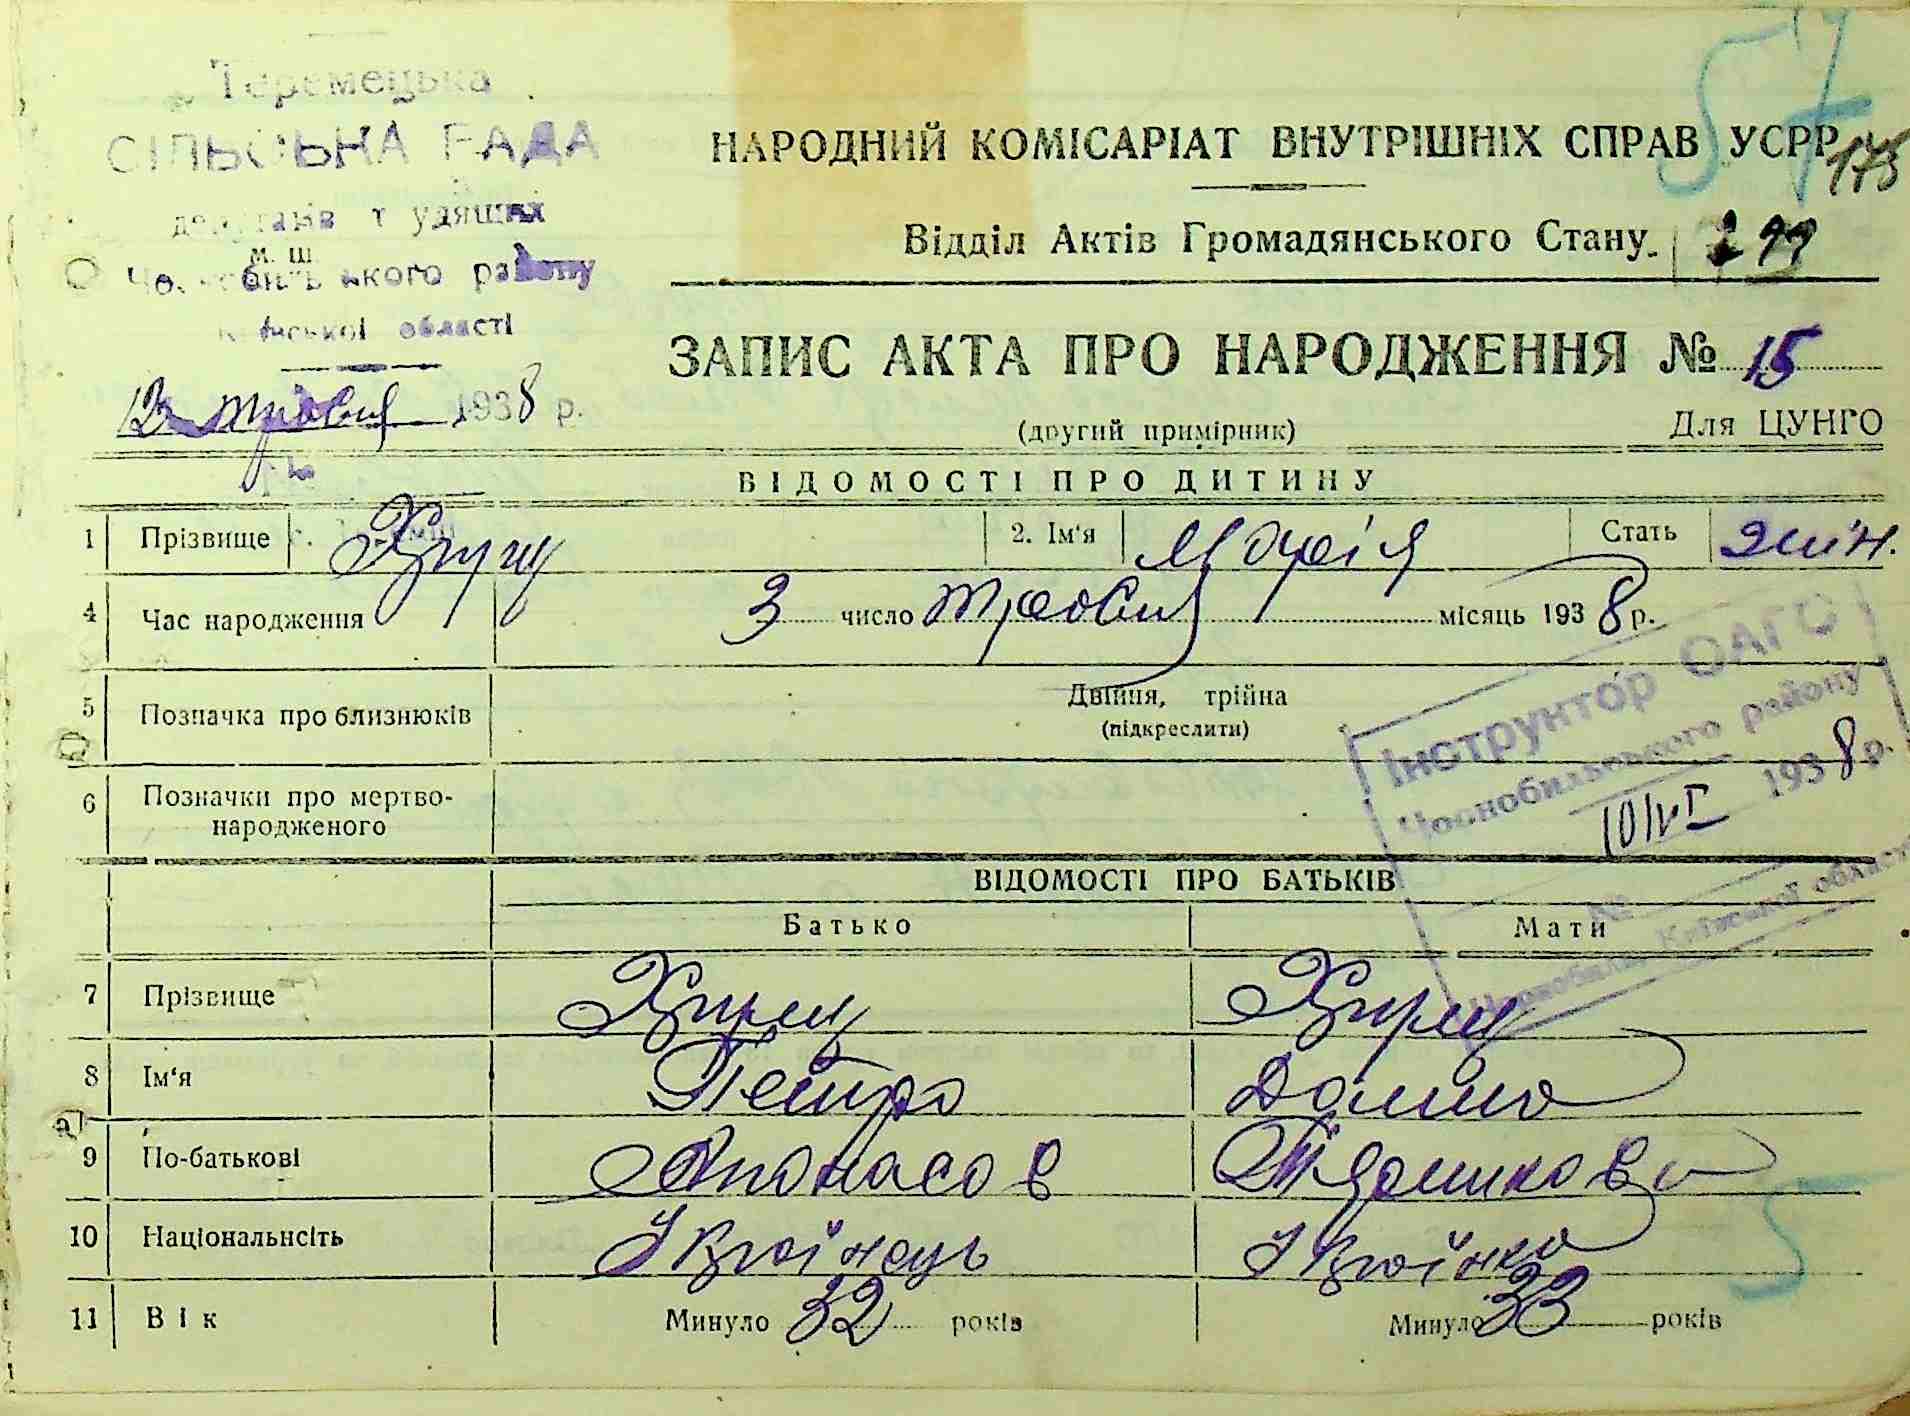 Теремецька
СІЛЬСЬКА РАДА
депутатів трудящих
м. ш.
Чорнобильського району
Київської області
12 травня 1938 р.
57
НАРОДНИЙ КОМІСАРІАТ ВНУТРІШНІХ СПРАВ УСРР
175
Відділ Актів Громадянського Стану.
ЗАПИС АКТА ПРО НАРОДЖЕННЯ № 15
(другий примірник) Для ЦУНГО
ВІДОМОСТІ ПРО ДИТИНУ
1 Прізвище 2. Ім'я Марія Стать жін.
4 Час народження 3 число травня місяць 1938 р.
5 Позначка про близнюків Двійня, трійна
(підкреслити)
6 Позначки про мертво-
народженого
Інструктор ОАГС
Чорнобильського району
10/VI 1938 р.
№
Чорнобиль, Київської області
ВІДОМОСТІ ПРО БАТЬКІВ
Батько Мати
7 Прізвище
8 Ім'я Петро Домна
9 По-батькові Апанасов
10 Національнсіть Українець Українка
11 Вік Минуло 32 років Минуло 33 років
5